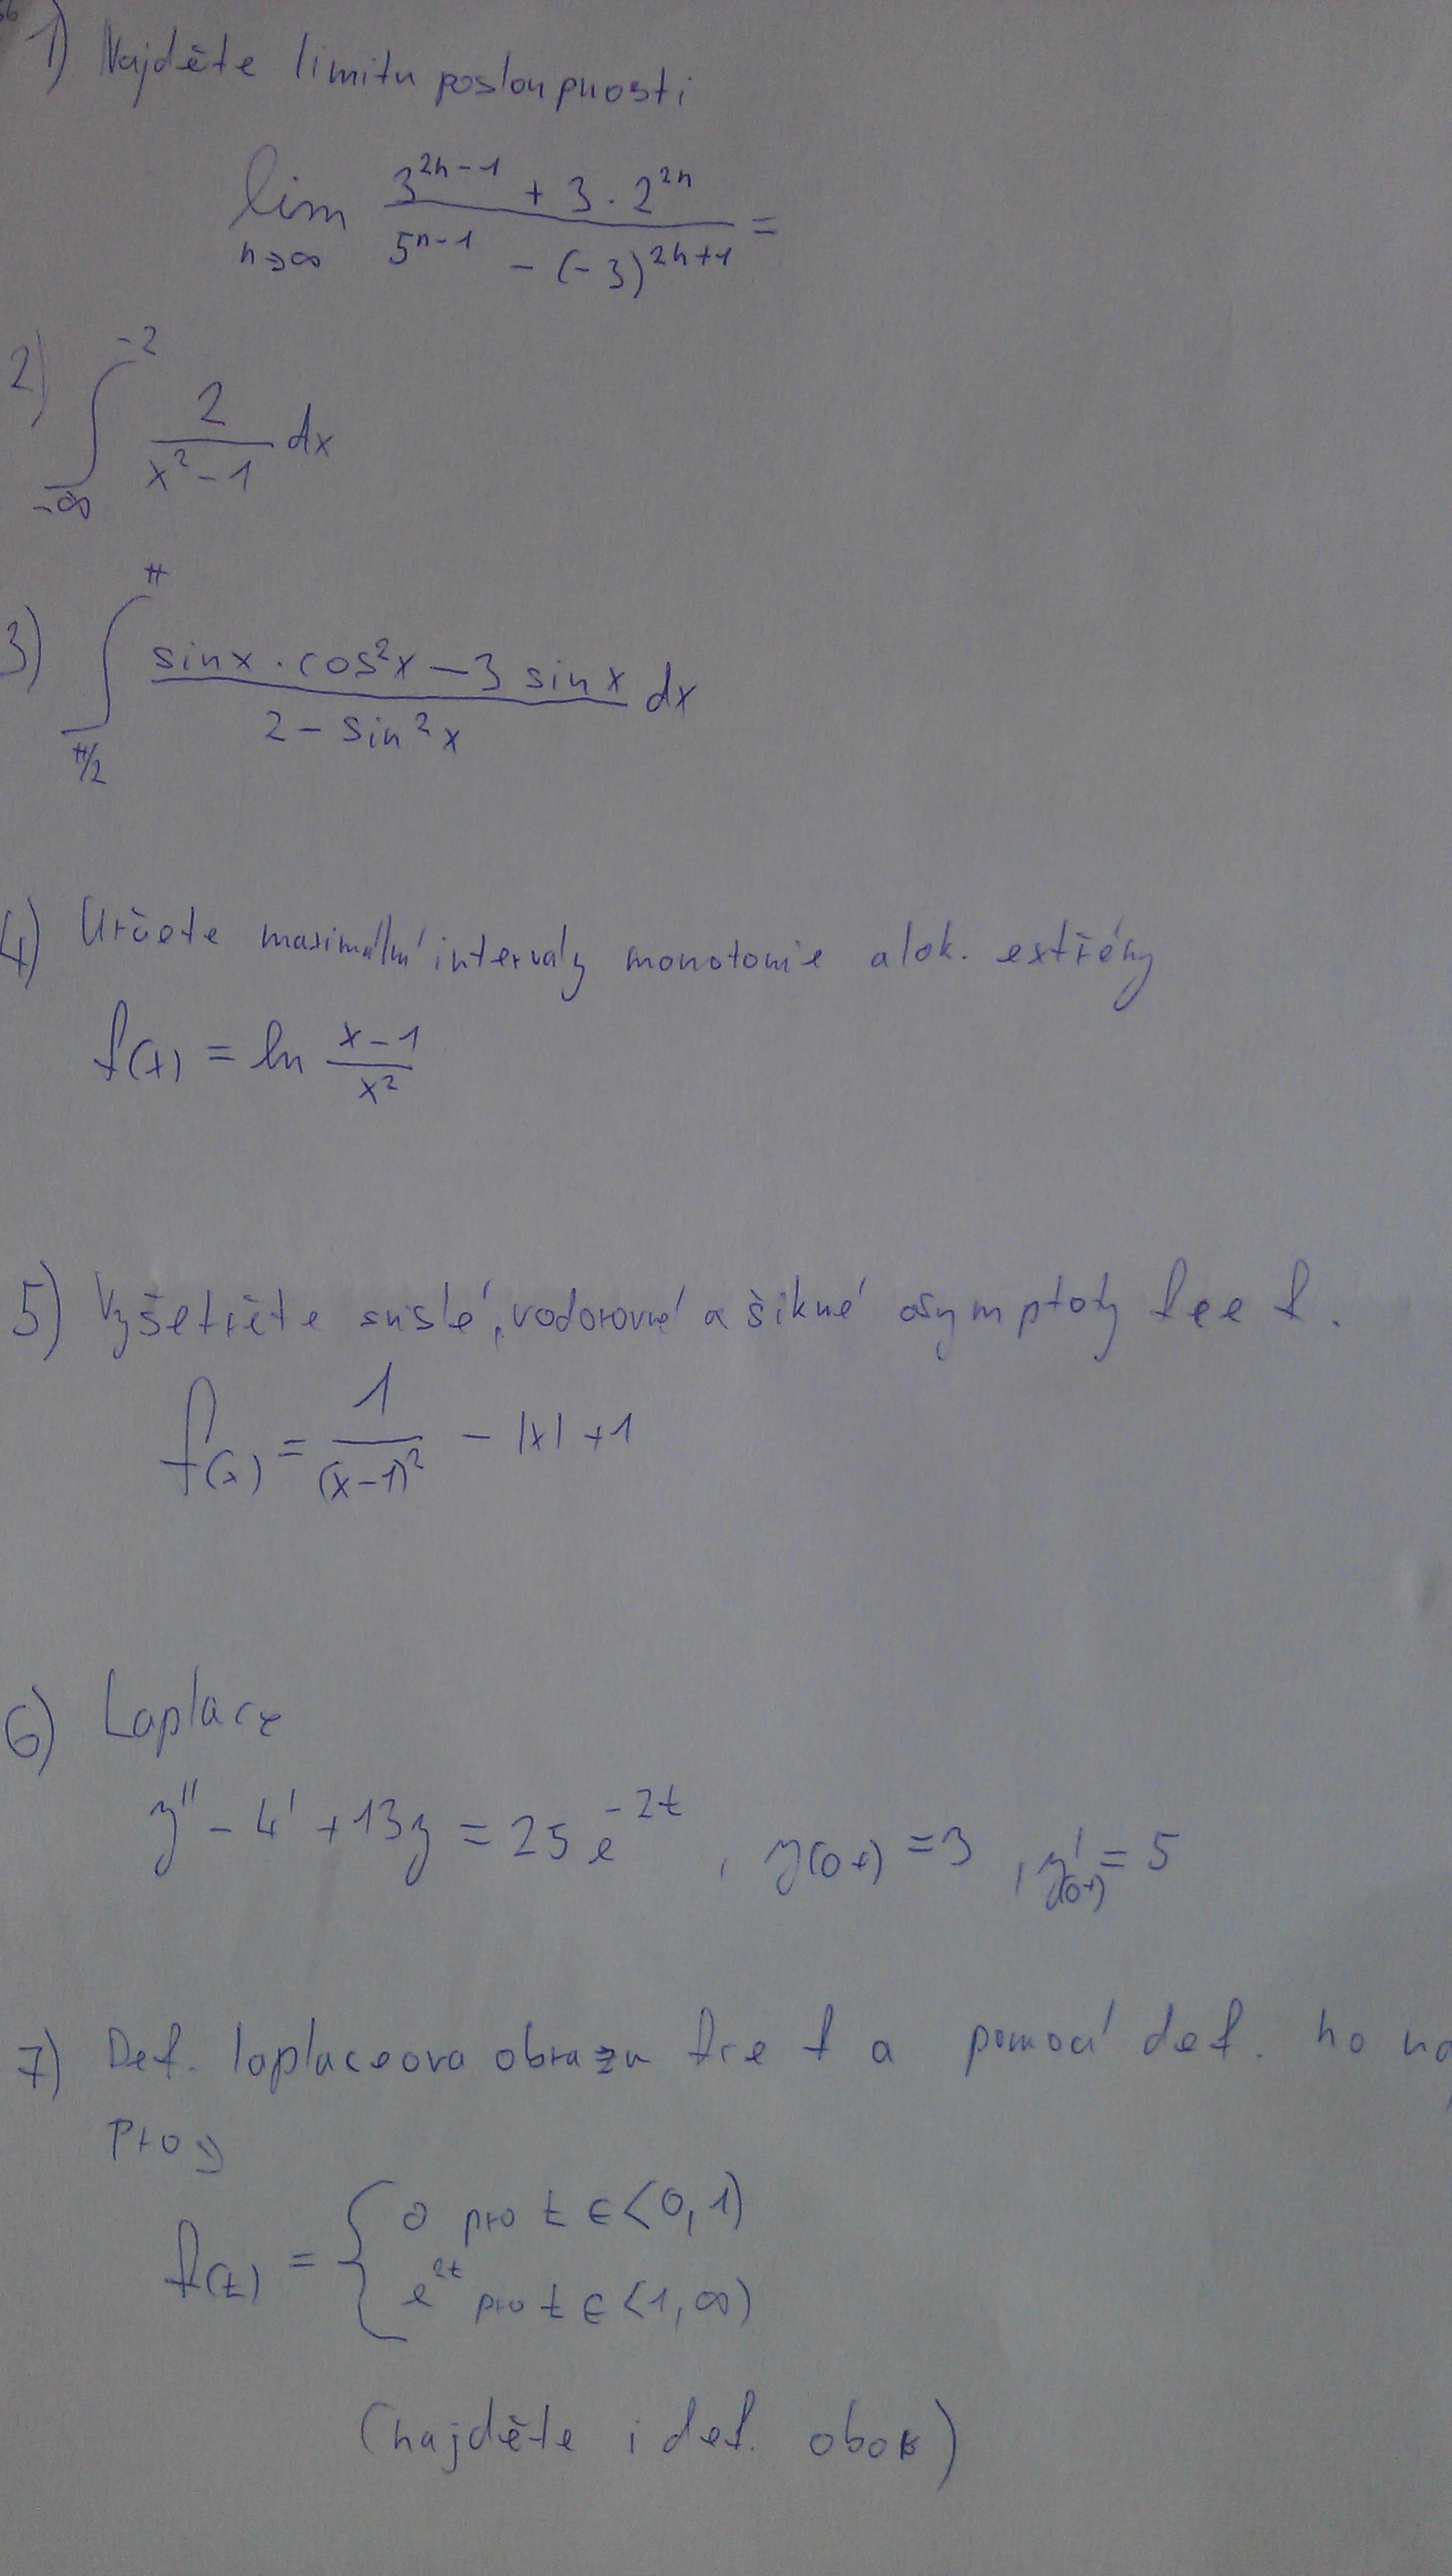 1) Najděte limitu posloupnosti
lim n→∞ (3^(2n-1) + 3 · 2^(2n)) / (5^(n-1) - (-3)^(2n+1)) =
2) ∫_(-∞)^(-2) 2 / (x² - 1) dx
3) ∫_(π/2)^π (sin x · cos² x - 3 sin x) / (2 - sin² x) dx
4) Určete maximální intervaly monotonie a lok. extrémy
f(x) = ln (x - 1) / x²
5) Vyšetřete svislé, vodorovné a šikmé asymptoty fce f.
f(x) = 1 / (x - 1)² - |x| + 1
6) Laplace
y'' - 4' + 13y = 25 e^(-2t), y(0+) = 3, y'(0+) = 5
7) Def. laplaceova obrazu fce f a pomocí def. ho
pro
f(t) = { 0 pro t ∈ <0, 1)
e^(2t) pro t ∈ <1, ∞)
(najděte i def. obor)